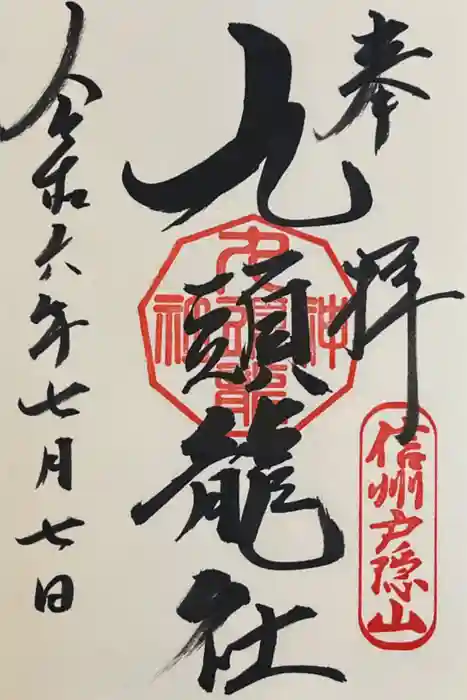 奉拝
信州戸隠山
九頭龍社
令和六年七月七日